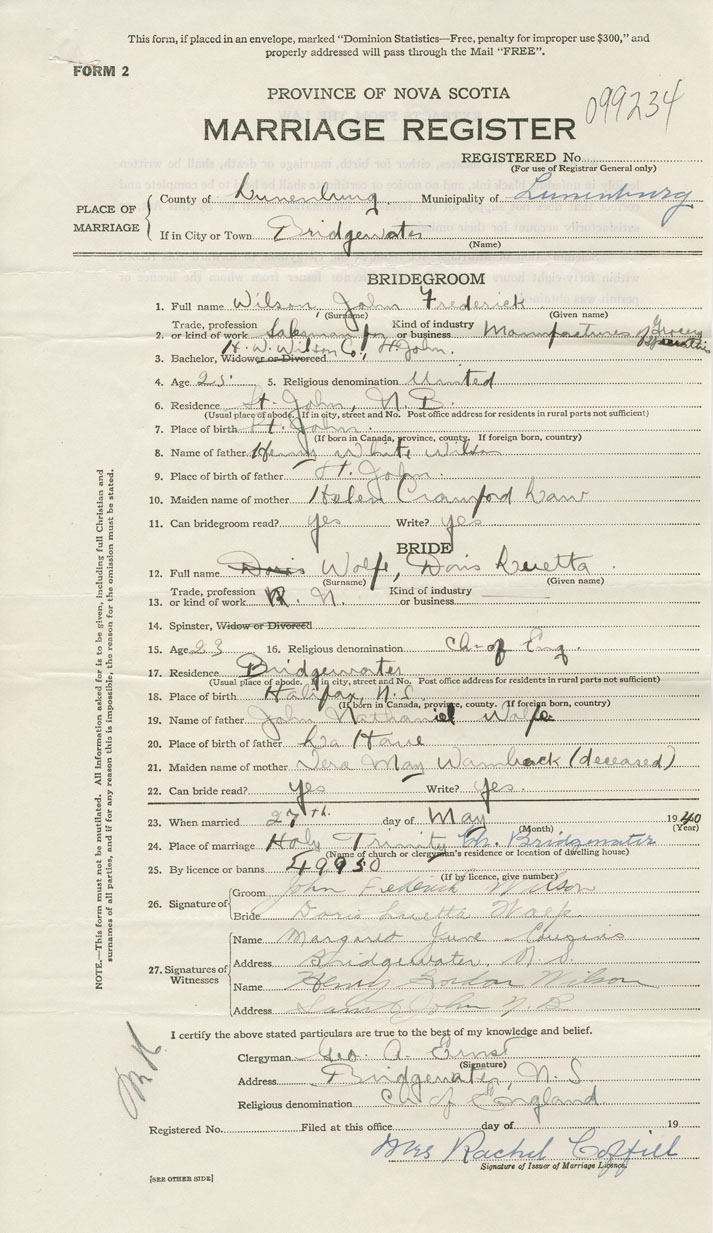 This form, if placed in an envelope, marked "Dominion Statistics—Free, penalty for improper use $300," and
properly addressed will pass through the Mail "FREE".
FORM 2
PROVINCE OF NOVA SCOTIA
099234
MARRIAGE REGISTER
REGISTERED No.
(For use of Registrar General only)
PLACE OF MARRIAGE
County of Lunenburg Municipality of Lunenburg
If in City or Town Bridgewater
(Name)
BRIDEGROOM
1. Full name Wilson, John Frederick
(Surname) (Given name)
Trade, profession Kind of industry
2. or kind of work Salesman for or business Manufactures Grocery Specialties
H. W. Wilson Co., St. John.
3. Bachelor, Widower or Divorced
4. Age 25 5. Religious denomination United
6. Residence St. John, N.B.
(Usual place of abode. If in city, street and No. Post office address for residents in rural parts not sufficient)
7. Place of birth St. John.
(If born in Canada, province, county. If foreign born, country)
8. Name of father Henry White Wilson
9. Place of birth of father St. John.
10. Maiden name of mother Helen Crawford Law
11. Can bridegroom read? yes Write? yes
BRIDE
12. Full name Doris Wolfe, Doris Luetta
(Surname) (Given name)
Trade, profession Kind of industry
13. or kind of work R. N. or business
14. Spinster, Widow or Divorced
15. Age 23 16. Religious denomination Ch. of Eng.
17. Residence Bridgewater
(Usual place of abode. If in city, street and No. Post office address for residents in rural parts not sufficient)
18. Place of birth Halifax, N.S.
(If born in Canada, province, county. If foreign born, country)
19. Name of father John Nathaniel Wolfe
20. Place of birth of father La Have
21. Maiden name of mother Vera May Wamback (deceased)
22. Can bride read? yes Write? yes.
23. When married 27th. day of May 1940
(Month) (Year)
24. Place of marriage Holy Trinity Ch. Bridgewater
(Name of church or clergyman's residence or location of dwelling house)
25. By licence or banns 49950
(If by licence, give number)
26. Signature of
Groom John Frederick Wilson
Bride Doris Luetta Wolfe
27. Signatures of Witnesses
Name Margaret June Cousins
Address Bridgewater, N.S.
Name Henry Gordon Wilson
Address Saint John N.B
I certify the above stated particulars are true to the best of my knowledge and belief.
Clergyman Geo. A. Ernst
(Signature)
Address Bridgewater, N.S
Religious denomination Ch. of England
Registered No. Filed at this office day of 19
Mrs Rachel Coffill
Signature of Issuer of Marriage Licence.
[SEE OTHER SIDE]
NOTE.—This form must not be mutilated. All information asked for is to be given, including full Christian and
surnames of all parties, and if for any reason this is impossible, the reason for the omission must be stated.